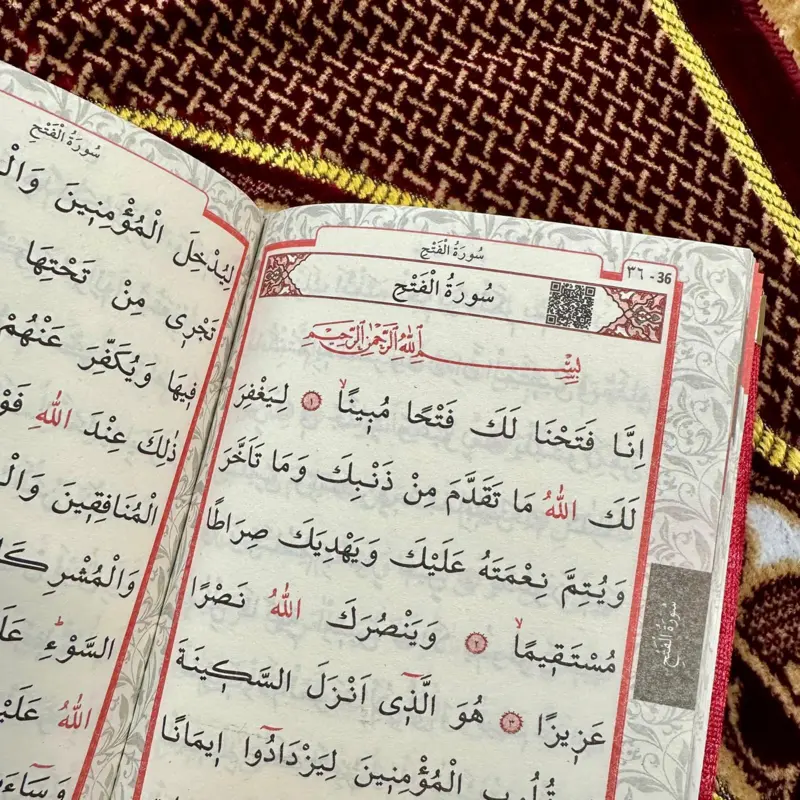 سُورَةُ الْفَتْحِ
٣٦ - 36
سُورَةُ الْفَتْحِ
بِسْمِ اللّٰهِ الرَّحْمٰنِ الرَّحِيمِ
اِنَّا فَتَحْنَا لَكَ فَتْحًا مُبٖينًاۙ ١ لِيَغْفِرَ
لَكَ اللّٰهُ مَا تَقَدَّمَ مِنْ ذَنْبِكَ وَمَا تَاَخَّرَ
وَيُتِمَّ نِعْمَتَهُ عَلَيْكَ وَيَهْدِيَكَ صِرَاطًا
مُسْتَقٖيمًاۙ ٢ وَيَنْصُرَكَ اللّٰهُ نَصْرًا
عَزٖيزًا ٣ هُوَ الَّذٖٓى اَنْزَلَ السَّكٖينَةَ
قُلُوبِ الْمُؤْمِنٖينَ لِيَزْدَادُٓوا اٖيمَانًا
سُورَةُ الْفَتْحِ
سُورَةُ الْفَتْحِ
لِيُدْخِلَ الْمُؤْمِنٖينَ
تَجْرٖى مِنْ تَحْتِهَا
فٖيهَا وَيُكَفِّرَ عَنْهُمْ
ذٰلِكَ عِنْدَ اللّٰهِ
الْمُنَافِقٖينَ
السَّوْءِؕ
اللّٰهُ